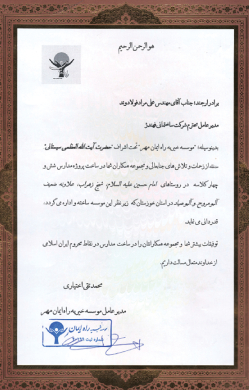 هو الرحمن الرحیم
برادر ارجمند؛ جناب آقای مهندس علی مراد فولادوند
مدیر عامل محترم شرکت ساختمانی
بدینوسیله "موسسه خیریه راه ایمان مهر" تحت اشراف "حضرت آیت الله العظمی سیستانی"
سند از زحمات و تلاش های جنابعالی و مجموعه همکاران شما در ساخت پروژه مدارس شش و
چهار کلاسه در روستاهای امام حسین علیه السلام، ضعیف
در استان خوزستان که زیر نظر این موسسه ساخته و اداره می گردد،
قدردانی می نماید.
توفیقات بیشتر شما و مجموعه همکارانتان را در ساخت مدارس در نقاط محروم ایران اسلامی
از خداوند متعال مسألت داریم.
محمد تقی اختیاری
مدیر عامل موسسه خیریه راه ایمان مهر